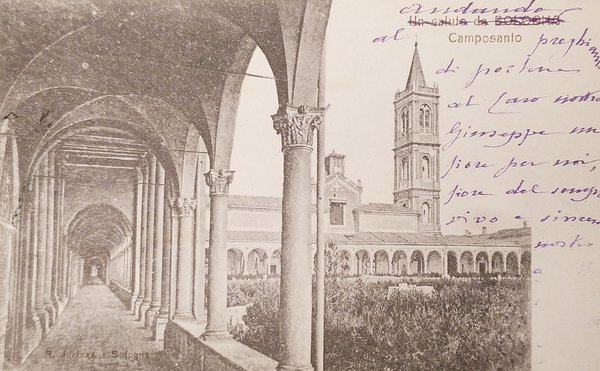 andando
Un saluto da BOLOGNA
al Camposanto preghiamo
di portare
al Caro nostro
Giuseppe un
fiore per noi,
fiore del semp
vivo e sincer
nostro
Bologna